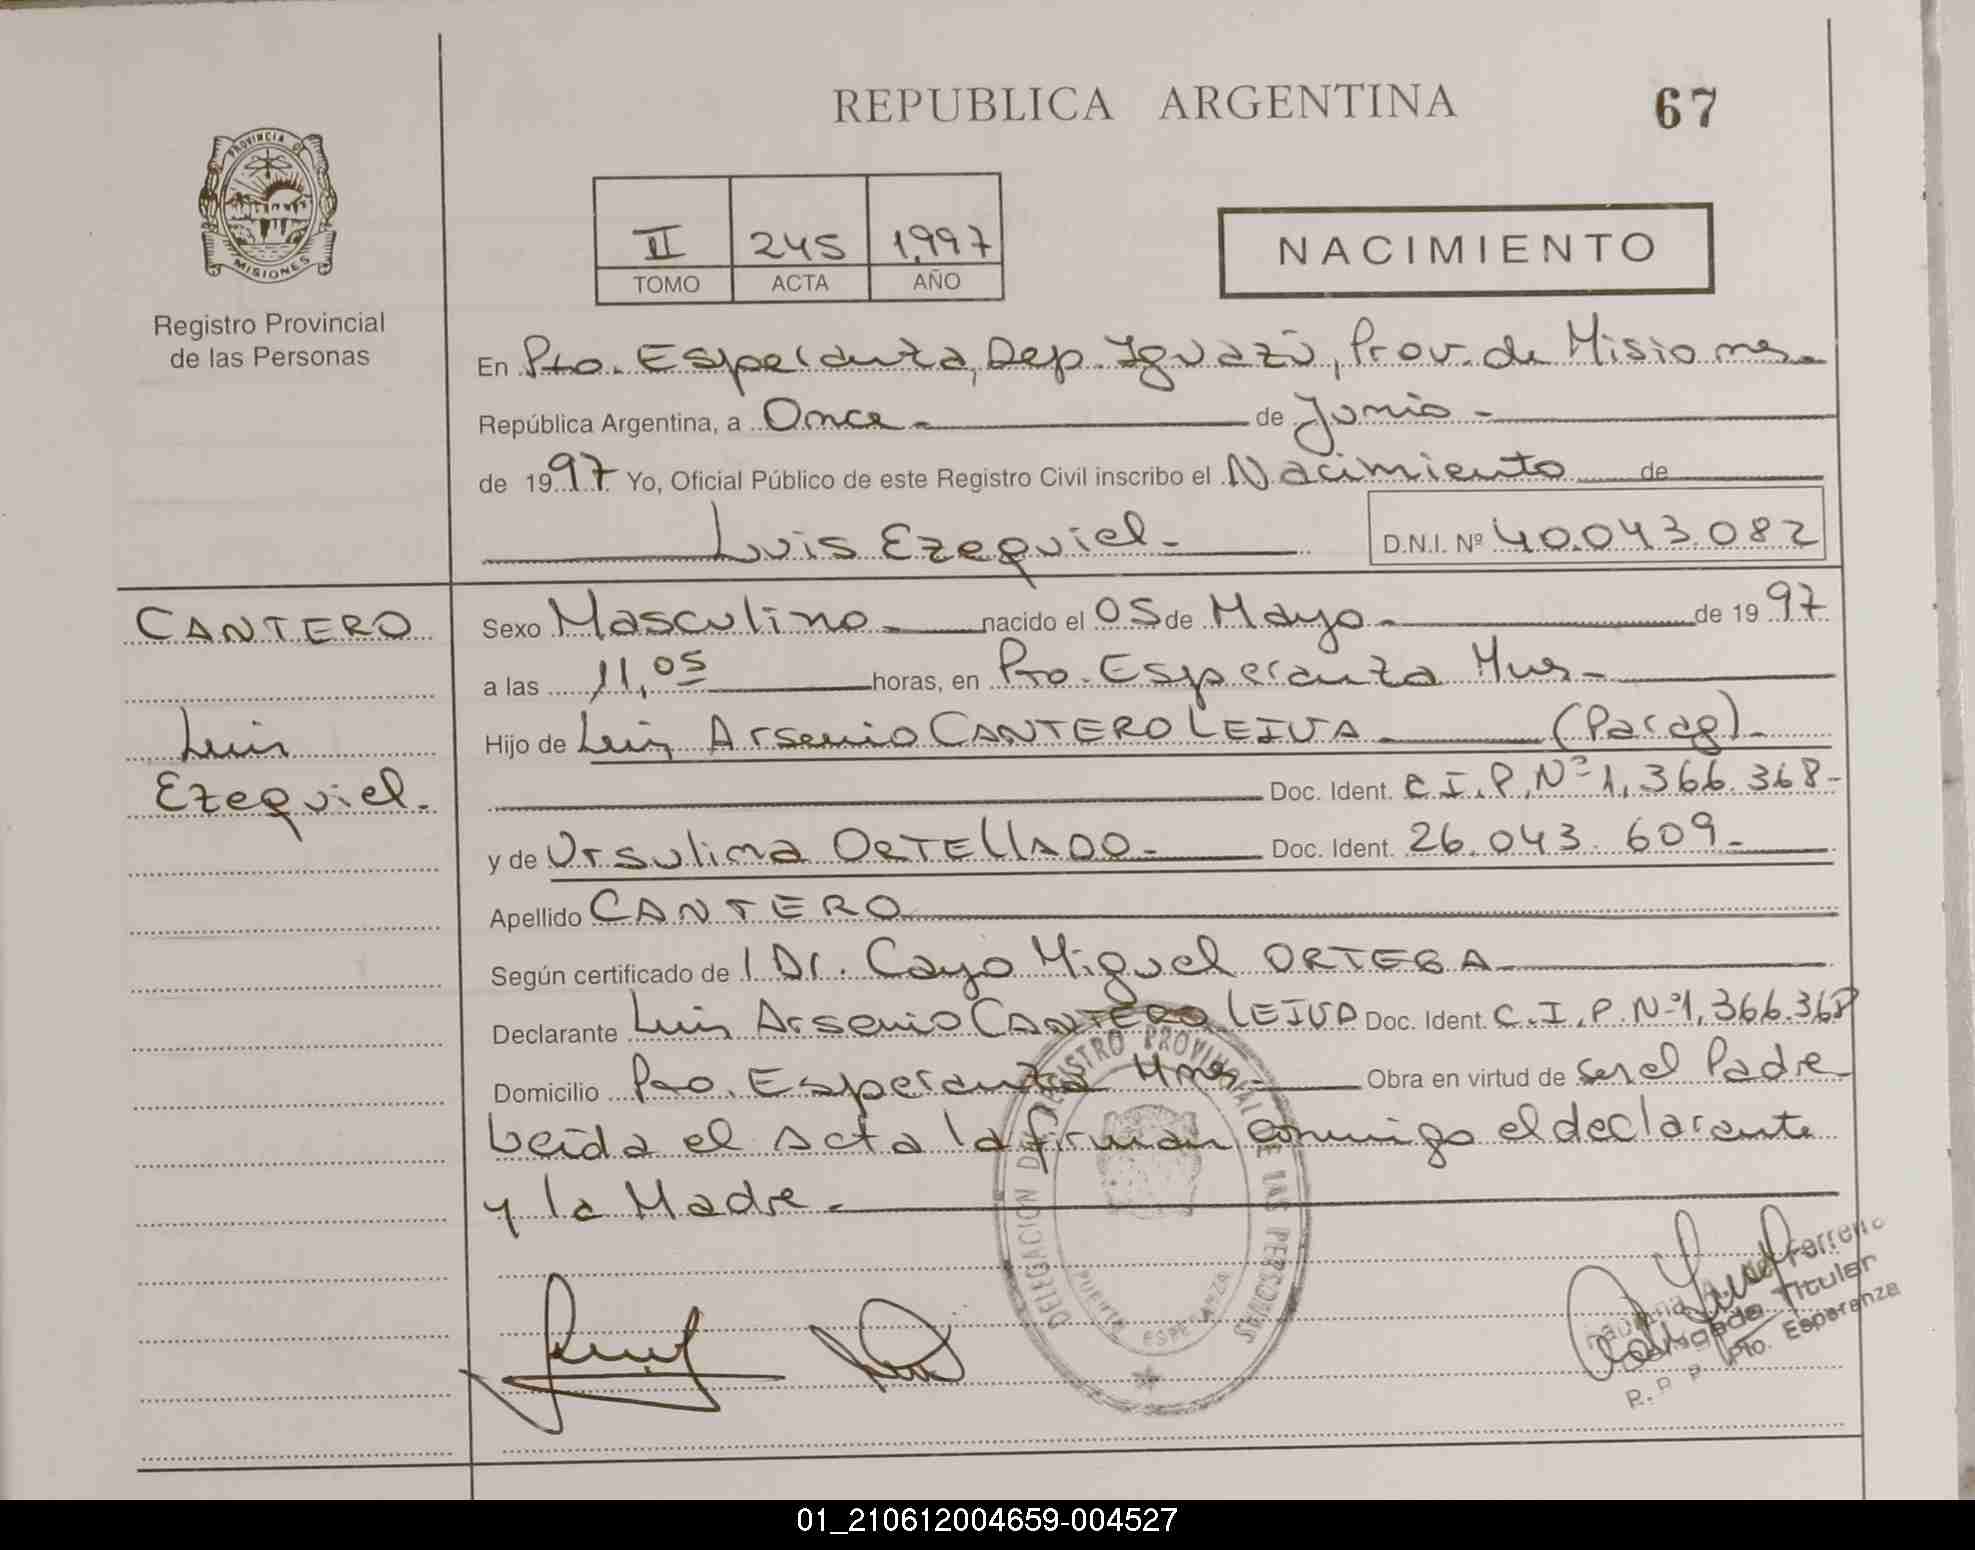 REPUBLICA ARGENTINA
67
PROVINCIA DE
MISIONES
Registro Provincial
de las Personas
II 245 1,997
TOMO ACTA AÑO
NACIMIENTO
En Pto. Esperanza, Dep. Iguazú, Prov. de Misiones.
República Argentina, a Once- de Junio-
de 1997 Yo, Oficial Público de este Registro Civil inscribo el Nacimiento de
Luis Ezequiel- D.N.I. Nº 40.043.082
CANTERO
Luis
Ezequiel.
Sexo Masculino- nacido el 05 de Mayo- de 1997
a las 11,05 horas, en Pto. Esperanza Mnes-
Hijo de Luis Arsenio CANTERO LEIVA- (Parag)-
Doc. Ident. C.I.P. Nº 1,366.368-
y de Ursulina ORTELLADO- Doc. Ident. 26.043.609-
Apellido CANTERO
Según certificado de l Dr. Cayo Miguel ORTEGA
Declarante Luis Arsenio CANTERO LEIVA Doc. Ident. C.I.P. Nº 1,366.368
Domicilio Pto. Esperanza Mnes- Obra en virtud de ser el Padre
Leída el acta la firman conmigo el declarante
y la Madre.-
DELEGACION DEL REGISTRO PROVINCIAL DE LAS PERSONAS
PUERTO ESPERANZA
de Ferreira
Delegada Titular
R. P. P. Pto. Esperanza
01_210612004659-004527